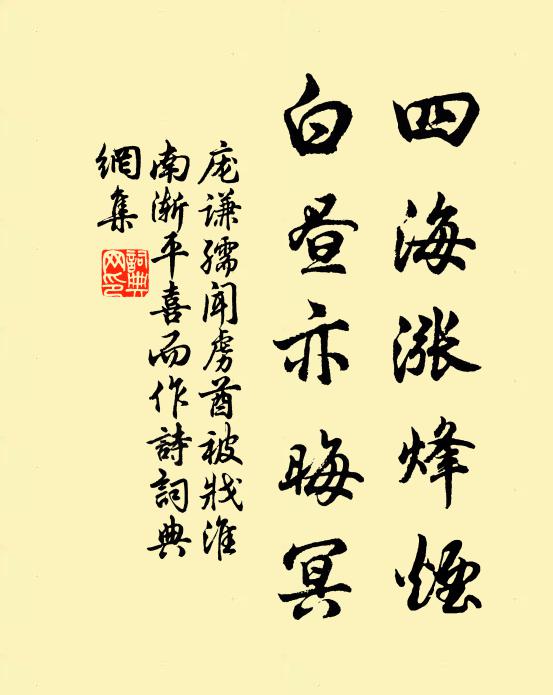 四海漲烽煙
白昼亦晦冥
庞谦孺闻虏酋被戕淮
南渐平喜而作詩詞典
網集
詞典
网印